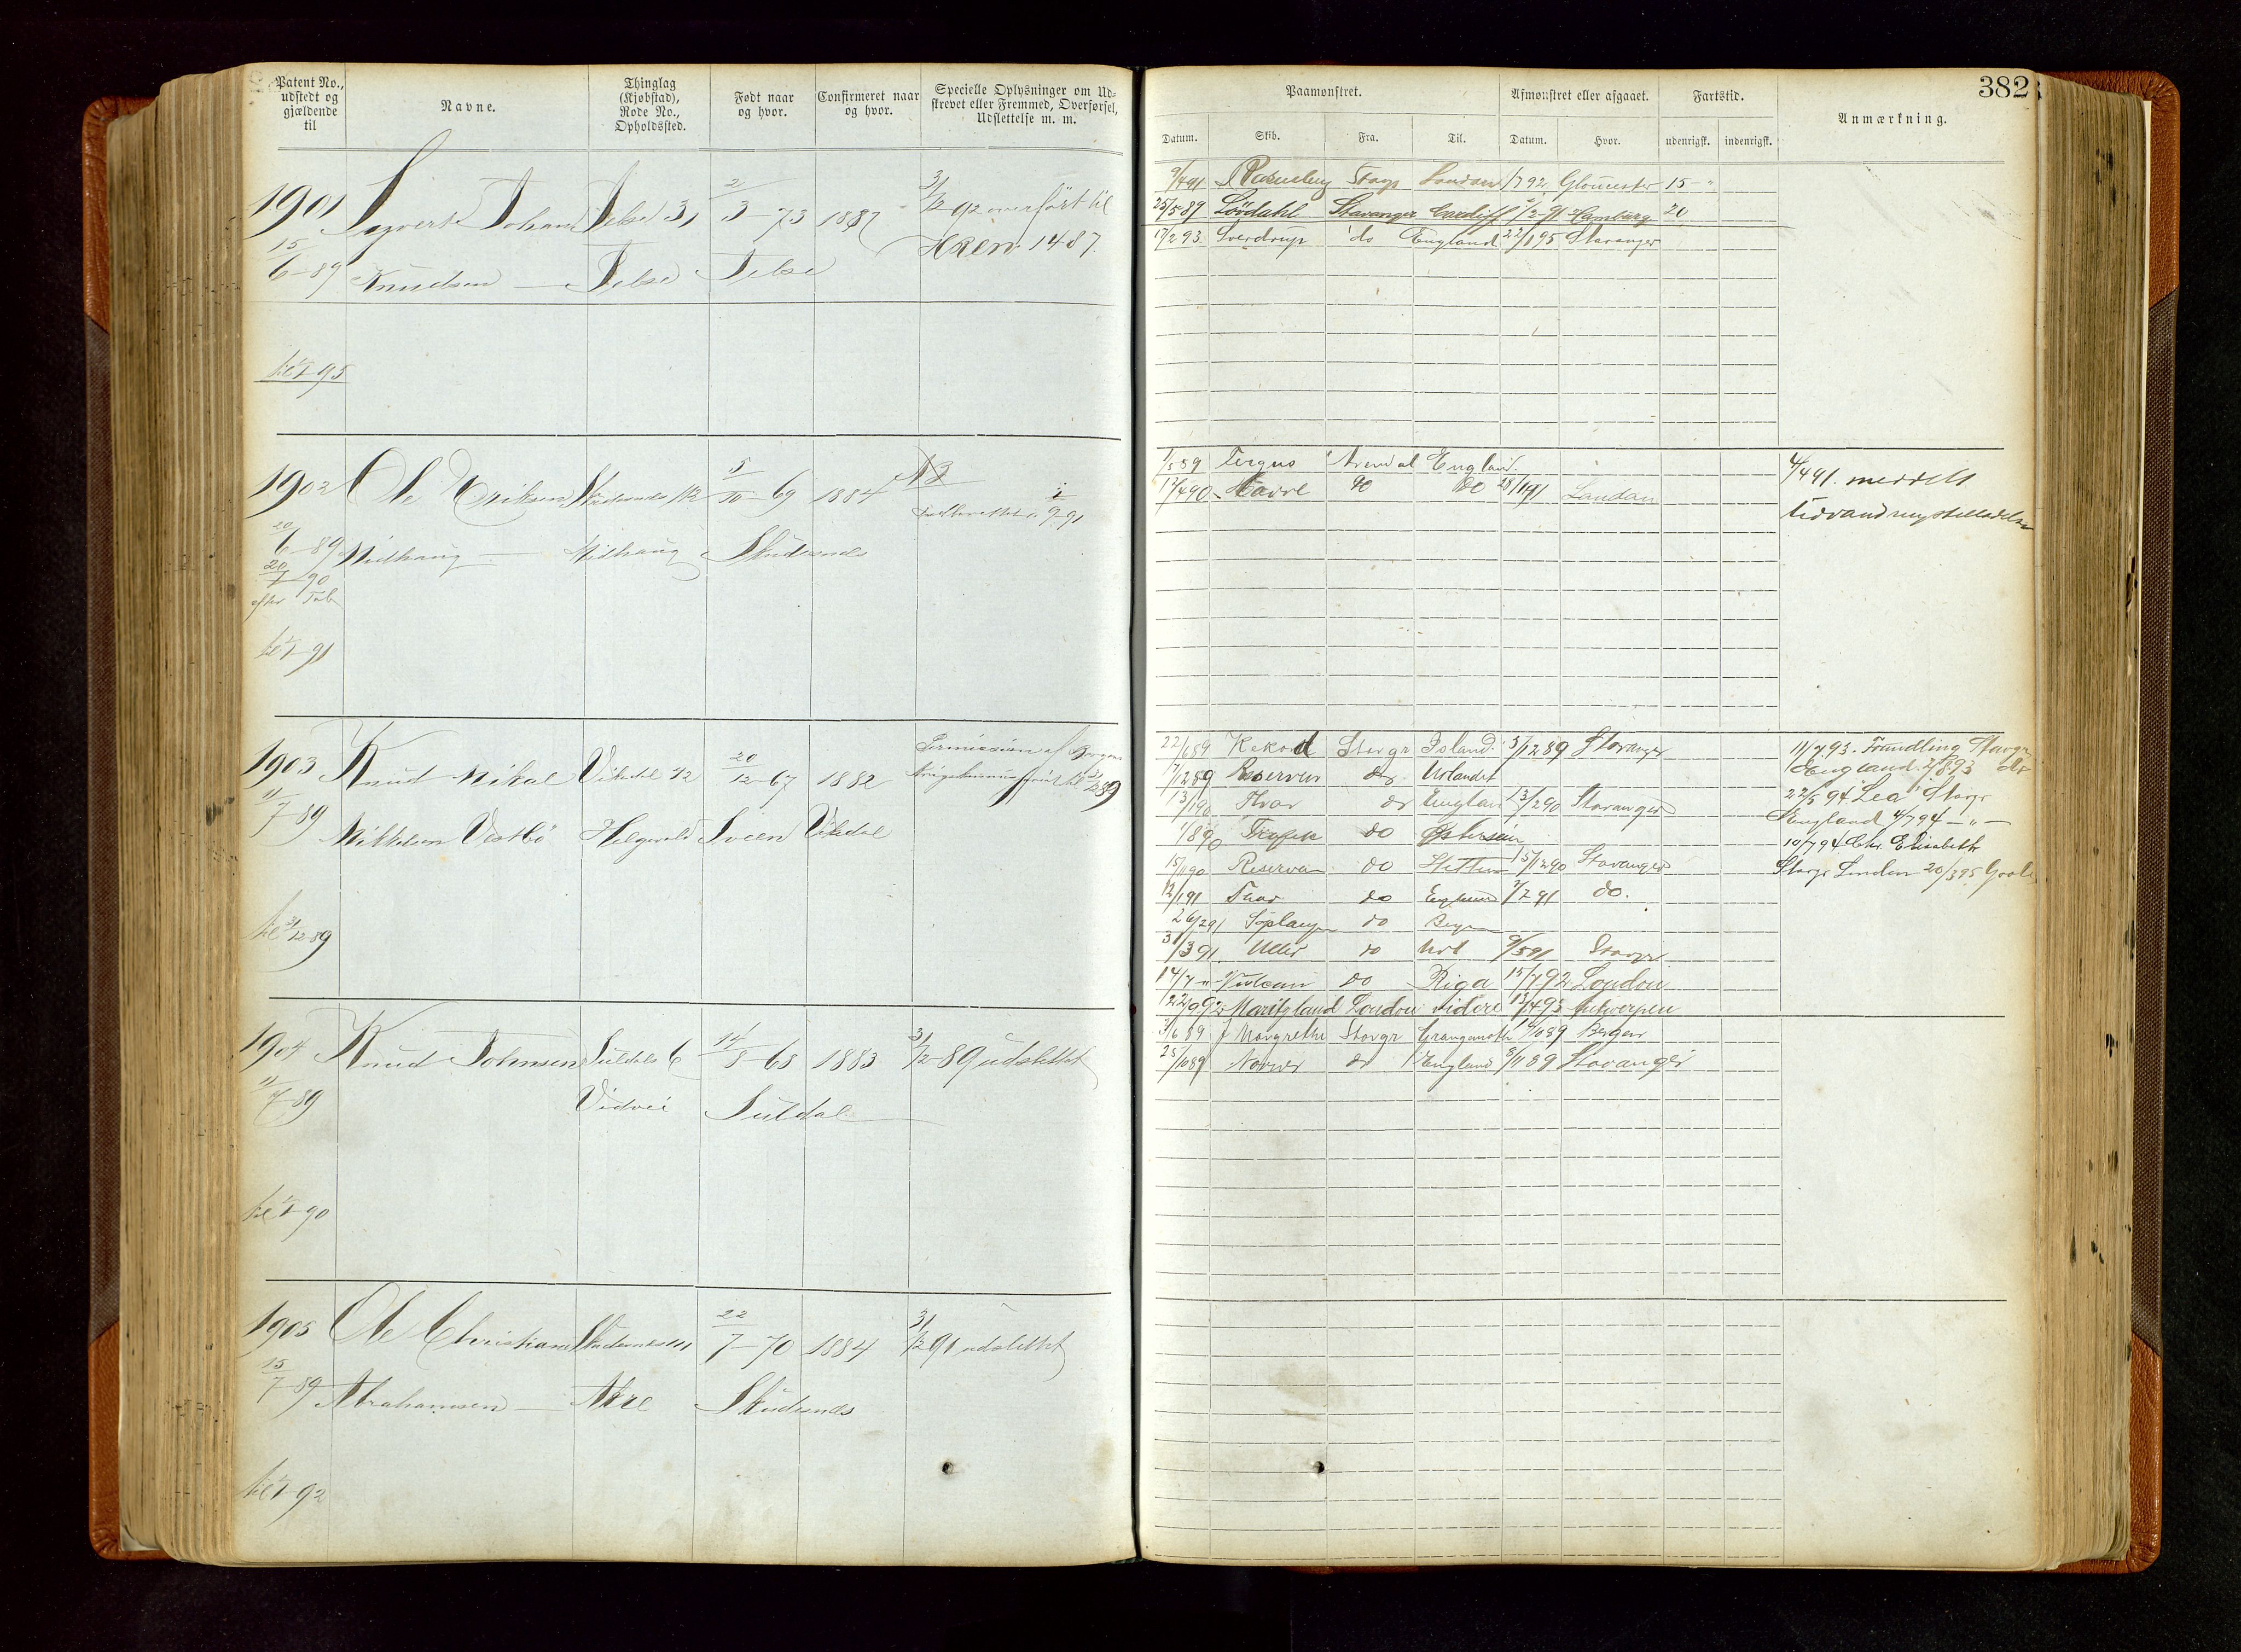 Patent No., udstedt og gjældende til
Navne.
Thinglag (Kjøbstad), Rode No., Opholdssted.
Født naar og hvor.
Confirmeret naar og hvor.
Specielle Oplysninger om Udskrevet eller Fremmed, Overførsel, Udslettelse m. m.
1901 Johan Jelse 31 2/3-73 1887 31/12 92 overført til
15/6-89 Knudsen — Jelse Jelse Hren: 1487.
til 1/1 95
1902 Ole Eriksen Skudesnæs 112 5/10-69 1884
20/6-89 Midhaug — Midhaug Skudesnæs
20/7-90
efter Tab
til 1/1-91
1903 Knud Mikal Vikedal 42 20/12-67 1882 Permission af Bergens
11/7 89 Mikkelsen Vestbö Helgevold Sveen Vikedal
til 31/12-89
1904 Knud Johnsen Suldals 6 14/8-68 1883 31/12-89 udslettet
11/7-89 Suldal
til 1/1-90
1905 Ole Christian Skudesnæs 111 22/7-70 1884 31/12 91 udslettet
15/7-89 Abrahamsen — Akre Skudesnæs
til 1/1-92
382
Paamønstret.
Afmønstret eller afgaaet.
Fartstid.
Anmærkning.
Datum. Skib. Fra. Til. Datum. Hvor. udenrigsk. indenrigsk.
9/4 91 Stavgr London 1/7 92 Gloucester 15 - "
25/5 89 Lövdahl Stavanger Cardiff 2/2-91 Hamburg 20
17/2 93 Sverdrup do England 22/1 95 Stavanger
1/5 89 Fergus Arendal England.
12/4 90 Havre do do 28/1 91 London
4/4 91. meddelt
Udvandringstilladelse
22/6 89 Rekord Stavgr Island 3/12 89 Stavanger
7/12 89 Reserven do Urlandet
13/1 90 Thor do England 13/2 90 Stavanger
1/8 90 do Østersøen
15/11 90 Reserven do Stettin 15/12 90 Stavanger
12/1 91 Thor do England 7/2 91 do.
26/2 91 do Bergen
31/3 91 Uller do Url 9/5 91 Stavgr
14/7 " Vulcan do Riga 15/7 92 London
22/9 92 London 13/4 93 Antwerpen
11/7 93. Foundling Stavgr
England 2/8 93 do
22/5 94 Lea Stavgr
England 4/7 94 — " —
10/7 94 Chr. Elisabeth
Stavgr London 20/3 95 Goole
3/6 89 Margrethe Stavgr Grangemouth 14/10 89 Bergen
25/10 89 Norver do England 8/11 89 Stavanger